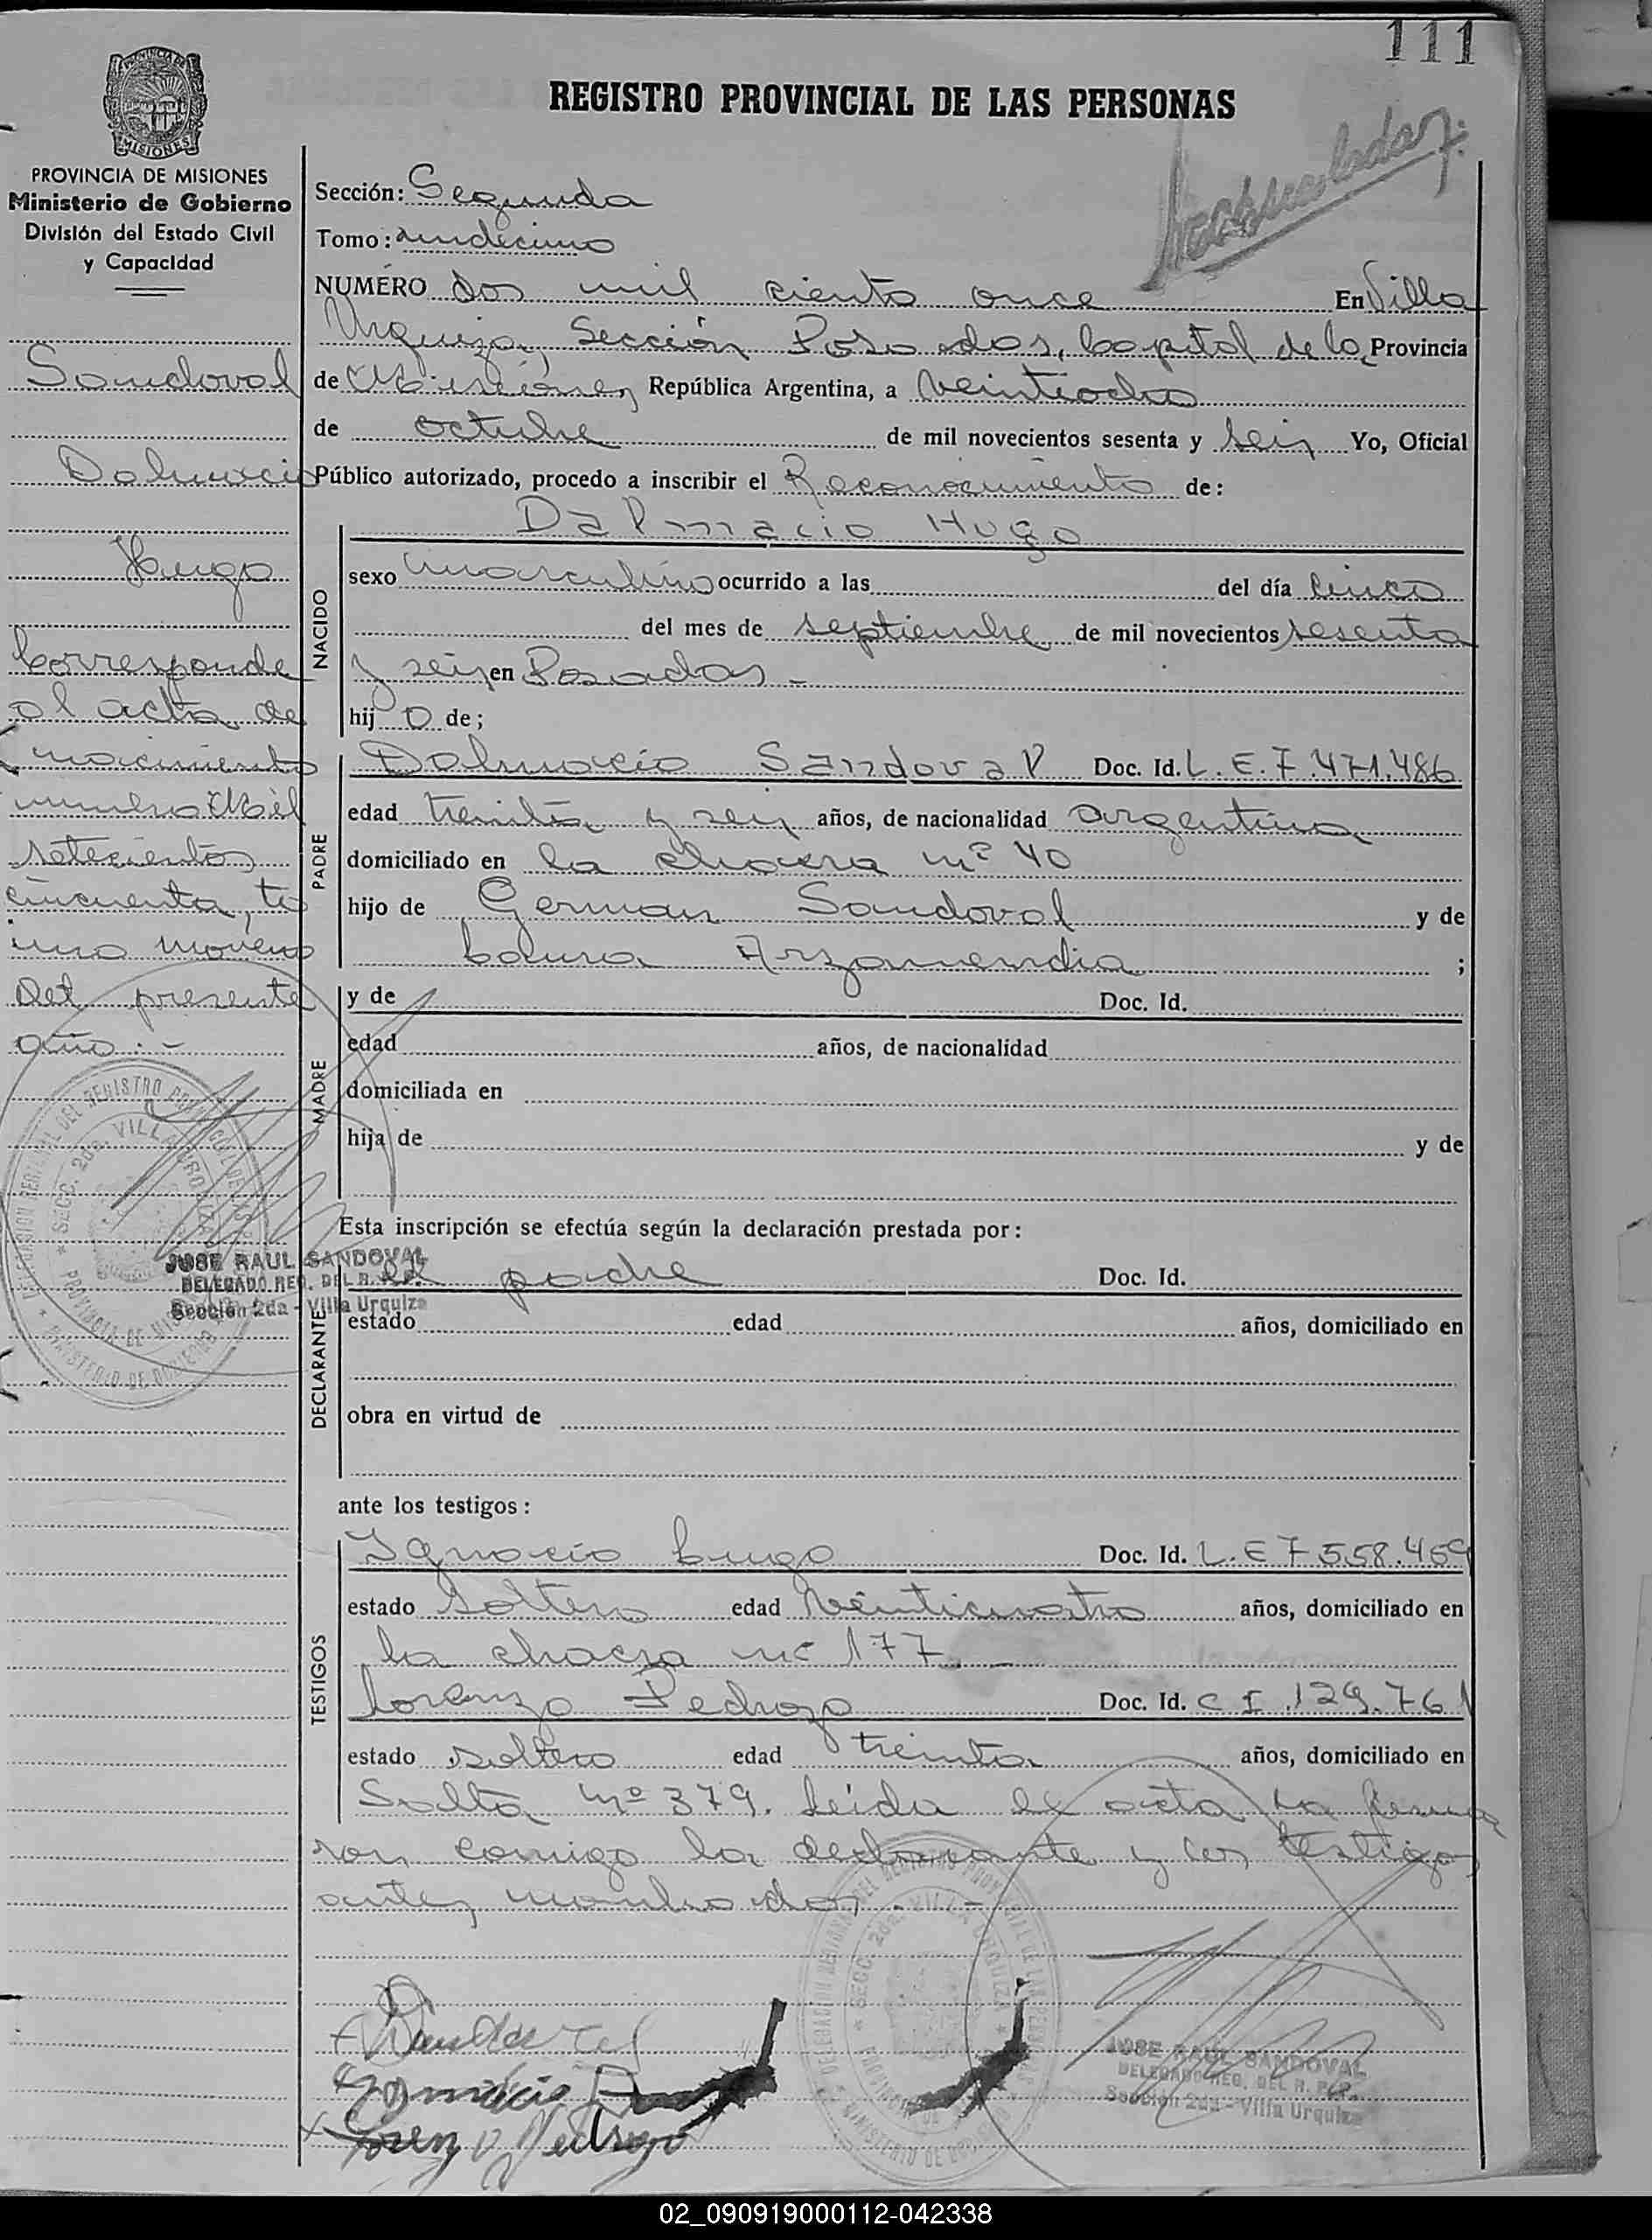 111
PROVINCIA DE
MISIONES
REGISTRO PROVINCIAL DE LAS PERSONAS
PROVINCIA DE MISIONES
Ministerio de Gobierno
División del Estado Civil
y Capacidad
Sandoval
Dalmacio
Hugo
Corresponde
al acta de
nacimiento
numero Mil
setecientos
cincuenta, to
mo noveno
del presente
año.-
Sección: Segunda
Tomo: undecimo
NUMERO dos mil ciento once En Villa
Urquiza, Sección Posadas, Capital de la Provincia
de Misiones, República Argentina, a veintiocho
de octubre de mil novecientos sesenta y seis Yo, Oficial
Público autorizado, procedo a inscribir el Reconocimiento de:
Dalmacio Hugo
NACIDO
sexo masculino ocurrido a las del día cinco
del mes de septiembre de mil novecientos sesenta
y seis en Posadas -
hij o de;
PADRE
Dalmacio Sandoval Doc. Id. L. E. 7.471.486
edad treinta y seis años, de nacionalidad argentina
domiciliado en la chacra nº 40
hijo de German Sandoval y de
Arzamendia ;
MADRE
y de Doc. Id.
edad años, de nacionalidad
domiciliada en
hija de y de
Esta inscripción se efectúa según la declaración prestada por:
DECLARANTE
el padre Doc. Id.
estado edad años, domiciliado en
obra en virtud de
JOSE RAUL SANDOVAL
DELEGADO REG. DEL R.
Sección 2da - Villa Urquiza
ante los testigos:
TESTIGOS
Ignacio Lugo Doc. Id. L. E 7 558.459
estado soltero edad veinticuatro años, domiciliado en
la chacra nº 177. -
Lorenzo Pedrozo Doc. Id. C I .129.761
estado soltero edad treinta años, domiciliado en
Salta Nº 379. Leida el acta la firma
ron comigo la declarante y los testigos
antes nombrados. -
Sandoval
Ignacio
Lorenzo Pedrozo
JOSE RAUL SANDOVAL
DELEGADO REG. DEL R. P. P.
Sección 2da - Villa Urquiza
02_090919000112-042338